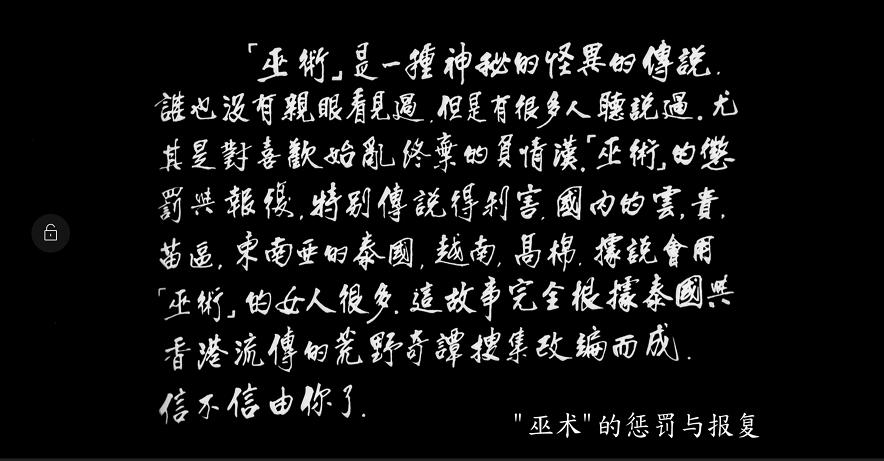 「巫術」是一種神秘的怪異的傳說.
誰也没有親眼看見過.但是有很多人聽説過.尤
其是對喜歡始亂終棄的負情漢.「巫術」的懲
罰與報復,特别傳説得利害.國内的雲,貴,
苗區,東南亞的泰國,越南,高棉.據説會用
「巫術」的女人很多.這故事完全根據泰國與
香港流傳的荒野奇譚搜集改編而成.
信不信由你了.
"巫术"的惩罚与报复